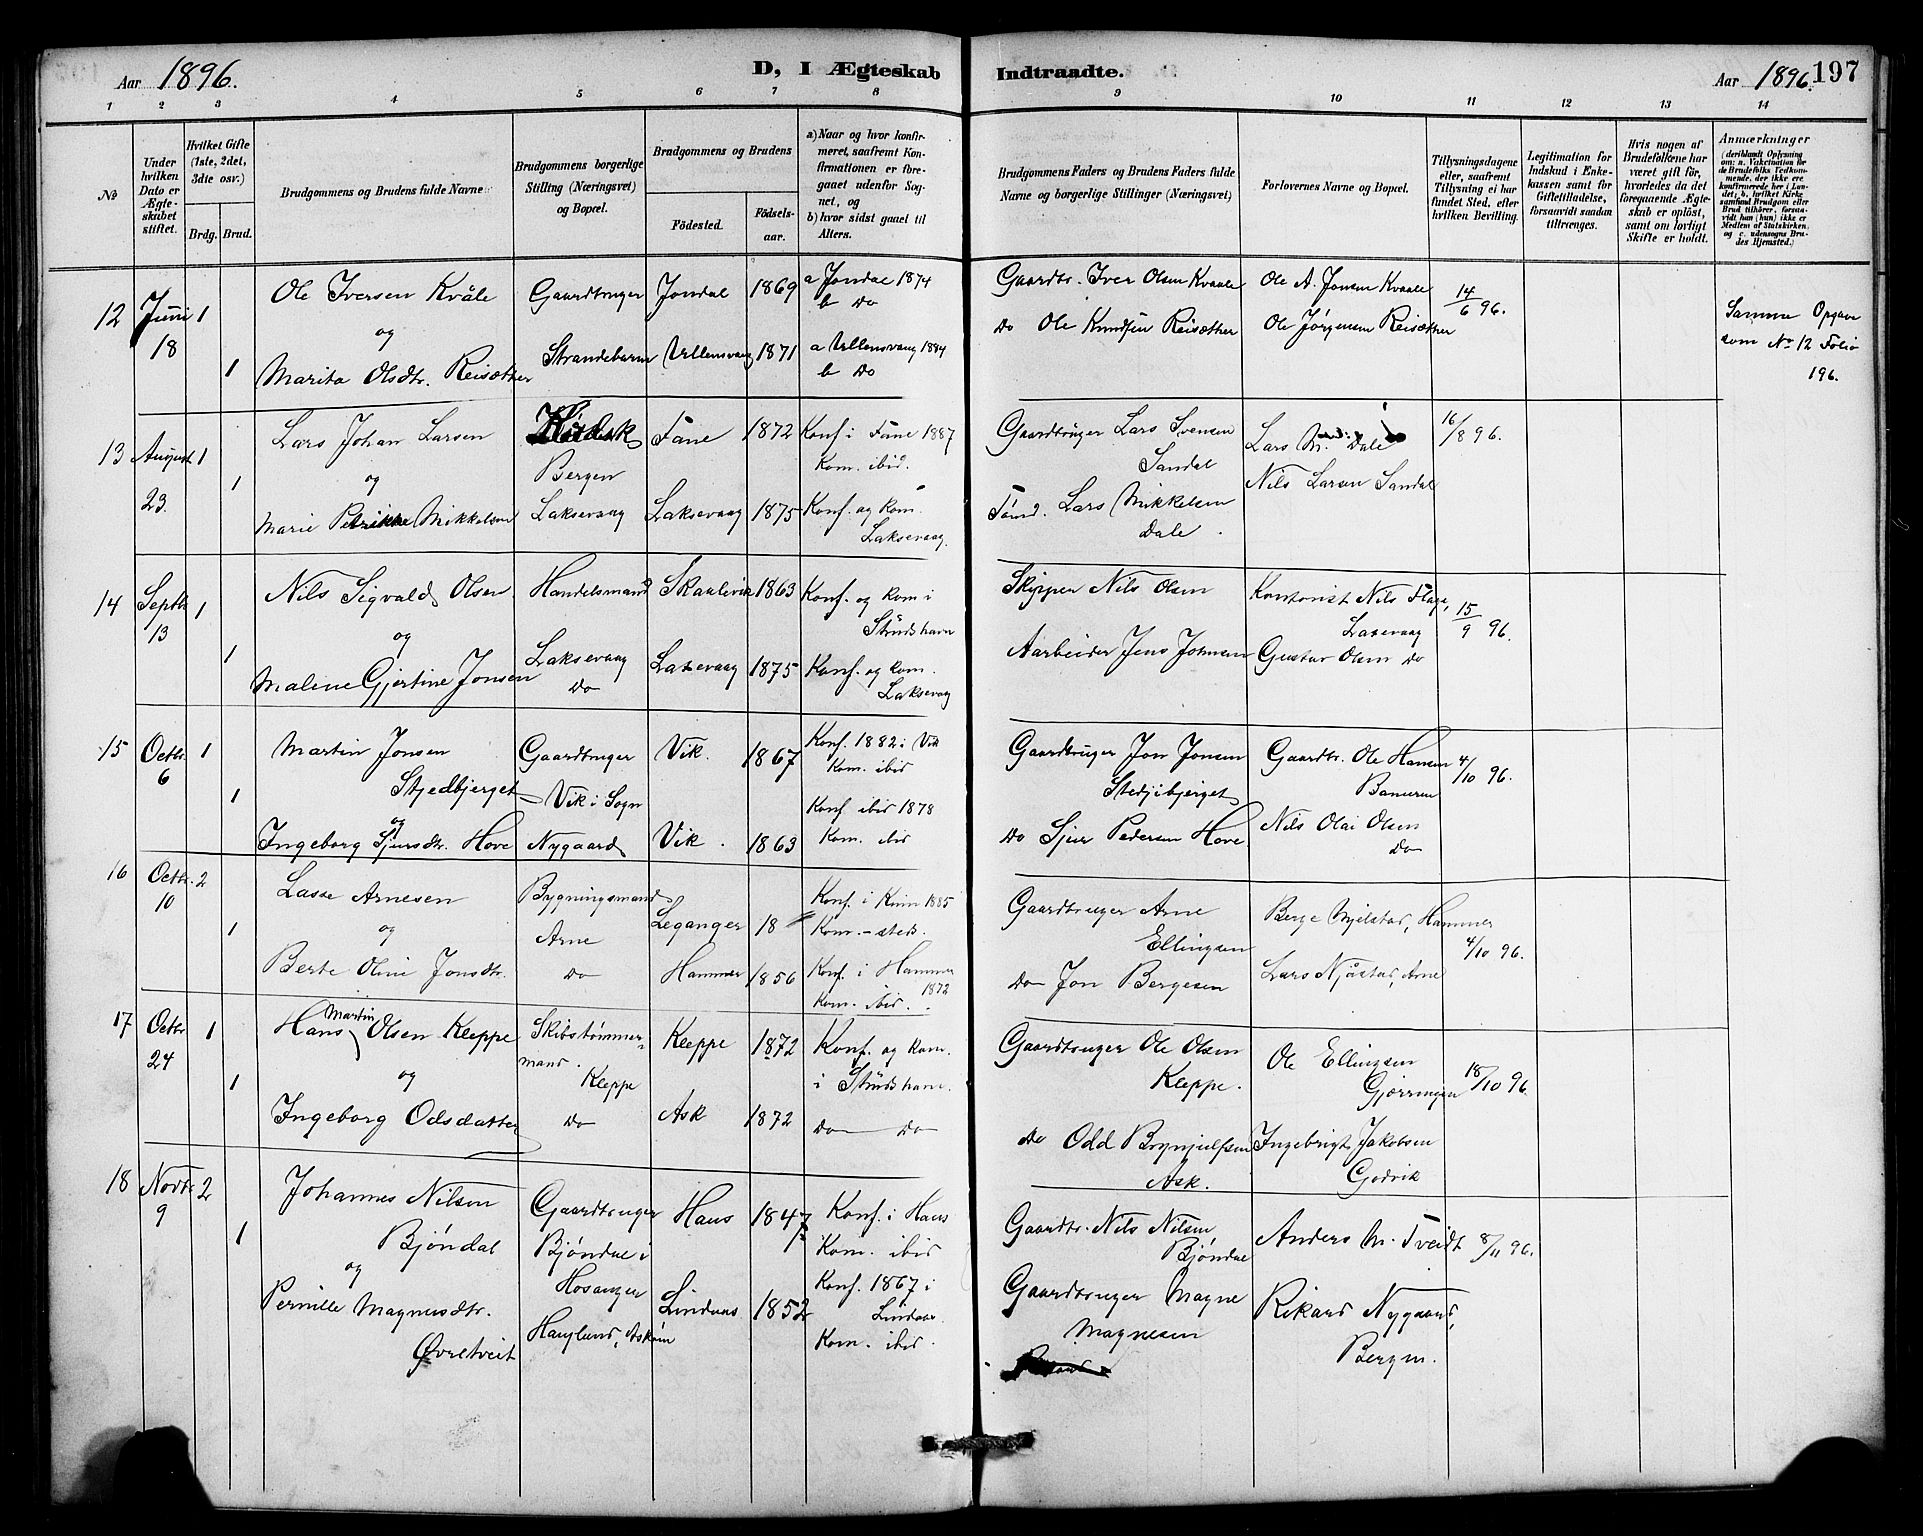 Aar 1896.
D, I Ægteskab
Indtraadte.
Aar 1896. 197
1 2 3 4 5 6 7 8 9 10 11 12 13 14
No
Under hvilken Dato er Ægteskabet stiftet.
Hvilket Gifte (1ste, 2det, 3die osv.)
Brdg. Brud.
Brudgommens og Brudens fulde Navne
Brudgommens borgerlige Stilling (Næringsvei) og Bopæl.
Brudgommens og Brudens
Födested. Födselsaar.
a) Naar og hvor konfirmeret, saafremt Konfirmationen er foregaaet udenfor Sognet, og
b) hvor sidst gaaet til Alters.
Brudgommens Faders og Brudens Faders fulde Navne og borgerlige Stillinger (Næringsvei)
Forlovernes Navne og Bopæl.
Tillysningsdagene eller, saafremt Tillysning ei har fundet Sted, efter hvilken Bevilling.
Legitimation for Indskud i Enkekassen samt for Giftetilladelse, forsaavidt saadan tiltrænges.
Hvis nogen af Brudefolkene har været gift för, hvorledes da det foregaaende Ægteskab er oplöst, samt om lovligt Skifte er holdt.
Anmærkninger
(deriblandt Oplysning om: a. Vaccination for de Brudefolks Vedkommende, der ikke ere konfirmerede her i Landet; b. hvilket Kirkesamfund Brudgom eller Brud tilhörer, forsaavidt han (hun) ikke er Medlem af Statskirken, og c. udensogns Brudes Hjemsted.)
12 Juni 18 1 1
Ole Iversen Kvåle
og
Marita Olsdtr. Reisæther
Gaardbruger
Strandebarm
Jondal 1869
Ullensvang 1871
a Jondal 1874
b Do
a Ullensvang 1884
b Do
Gaardbr. Iver Olsen Kvaale
Do Ole Knudsen Reisæther
Ole A. Jonsen Kvaale
Ole Jørgensen Reisæther
14/6 96.
Samme Opgave
som No 12 Folio
196.
13 August 23. 1 1
Lars Johan Larsen
og
Marie Petrikke Mikkelsen
Bergen
Laksevaag
Fane 1872
Laksevaag 1875
Konf. i Fane 1887
Kom. ibid.
Konf. og kom.
Laksevaag.
Gaardbruger Lars Svensen
Sandal
Tømd. Lars Mikkelsen
Dale.
Lars M. Dale
Nils Larsen Sandal
16/8 96.
14 Septbr 13 1 1
Nils Sigvald Olsen
og
Maline Gjertine Jonsen
Handelsmand
Laksevaag
Do
Skaalevik 1863
Laxevaag 1875
Konf. og kom i
Strudshavn
Konf. og kom.
Laksevaag
Skipper Nils Olsen
Aarbeider Jens Johnsen
Kontorist Nils Flage,
Laxevaag
Gustav Olsen do
15/9 96.
15 Octbr. 6 1 1
Martin Jonsen
Stjedbjerget
og
Ingeborg Sjursdtr. Hove
Gaardbruger
Vik i Sogn
Nygaard
Vik. 1867
Vik. 1863
Konf. 1882 i Vik
Kom. ibid
Konf ibid 1878
Kom. ibid
Gaardbruger Jon Jonsen
Stedjebjerget
Do Sjur Pedersen Hove
Gaardbr. Ole Hansen
Nils Olai Olsen
do
4/10 96.
16 Octbr. 10 2 1
Lasse Arnesen
og
Berte Oline Jonsdtr.
Bygningsmand
Arne
do
Leganger 18
Hammer 1856
Konf. i Kinn 1885
Kom. - steds.
Konf. i Hammer
1872
Kom. ibid.
Gaardbruger Arne
Ellingsen
Do Jon Bergesen
Berge Mjelstad, Hammer
Lars Njåstad, Arne
4/10 96.
17 Octbr 24 1 1
Hans Martin Olsen Kleppe
og
Ingeborg Odsdatter
Skibstømmermand.
Kleppe
do
Kleppe 1872
Ask 1872
Konf. og kom.
i Strudshavn.
Do Do
Gaardbruger Ole Olsen
Kleppe.
Do Odd Brynjulfsen
Ask.
Ole Ellingsen
Ingebrigt Jakobsen
Godvik
18/10 96.
18 Novbr 9 2 1
Johannes Nilsen
Bjöndal
og
Pernille Magnusdtr.
Øvretveit
Gaardbruger
Bjöndal i
Hosanger
Haugland, Askøen
Haus 1847
Lindaas 1852
Konf. i Haus
Kom. ibid
Konf. 1867 i
Lindaas
Kom. ibid.
Gaardbr. Nils Nilsen
Bjöndal
Gaardbruger Magne
Magnesen
Anders M. Tveidt
Rikard Nygaard,
Bergen.
8/11 96.